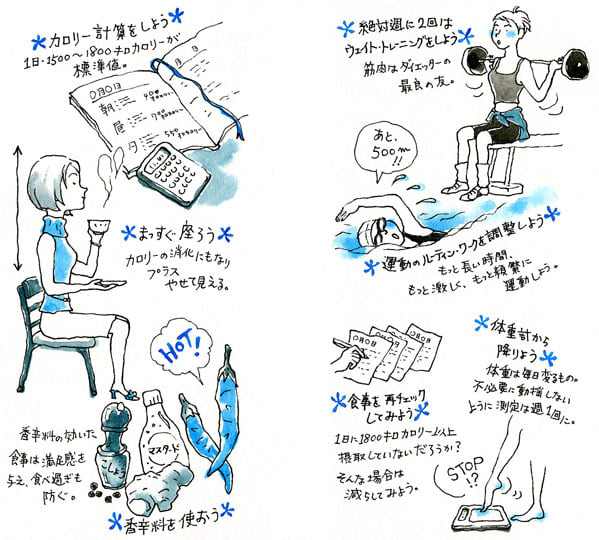 カロリー計算をしよう
1日・1500〜1800キロカロリーが
標準値。
○月○日
朝
400
キロカロリー
昼
700
キロカロリー
夕
550
キロカロリー
まっすぐ座ろう
カロリーの消化にもなり
プラス
やせて見える。
HOT!
香辛料の効いた
食事は満足感を
与え、食べ過ぎも
防ぐ。
こしょう
マスタード
香辛料を使おう
絶対週に2回は
ウェイト・トレーニングをしよう
筋肉はダイエッターの
最良の友。
あと、
500m
!!
運動のルーティン・ワークを調整しよう
もっと長い時間、
もっと激しく、もっと頻繁に
運動しよう。
○月○日
○月○日
○月○日
食事を再チェック
してみよう
1日に1800キロカロリー以上
摂取していないだろうか?
そんな場合は
減らしてみよう。
体重計から
降りよう
体重は毎日変るもの。
不必要に動揺しない
ように測定は週1回に。
STOP
!?